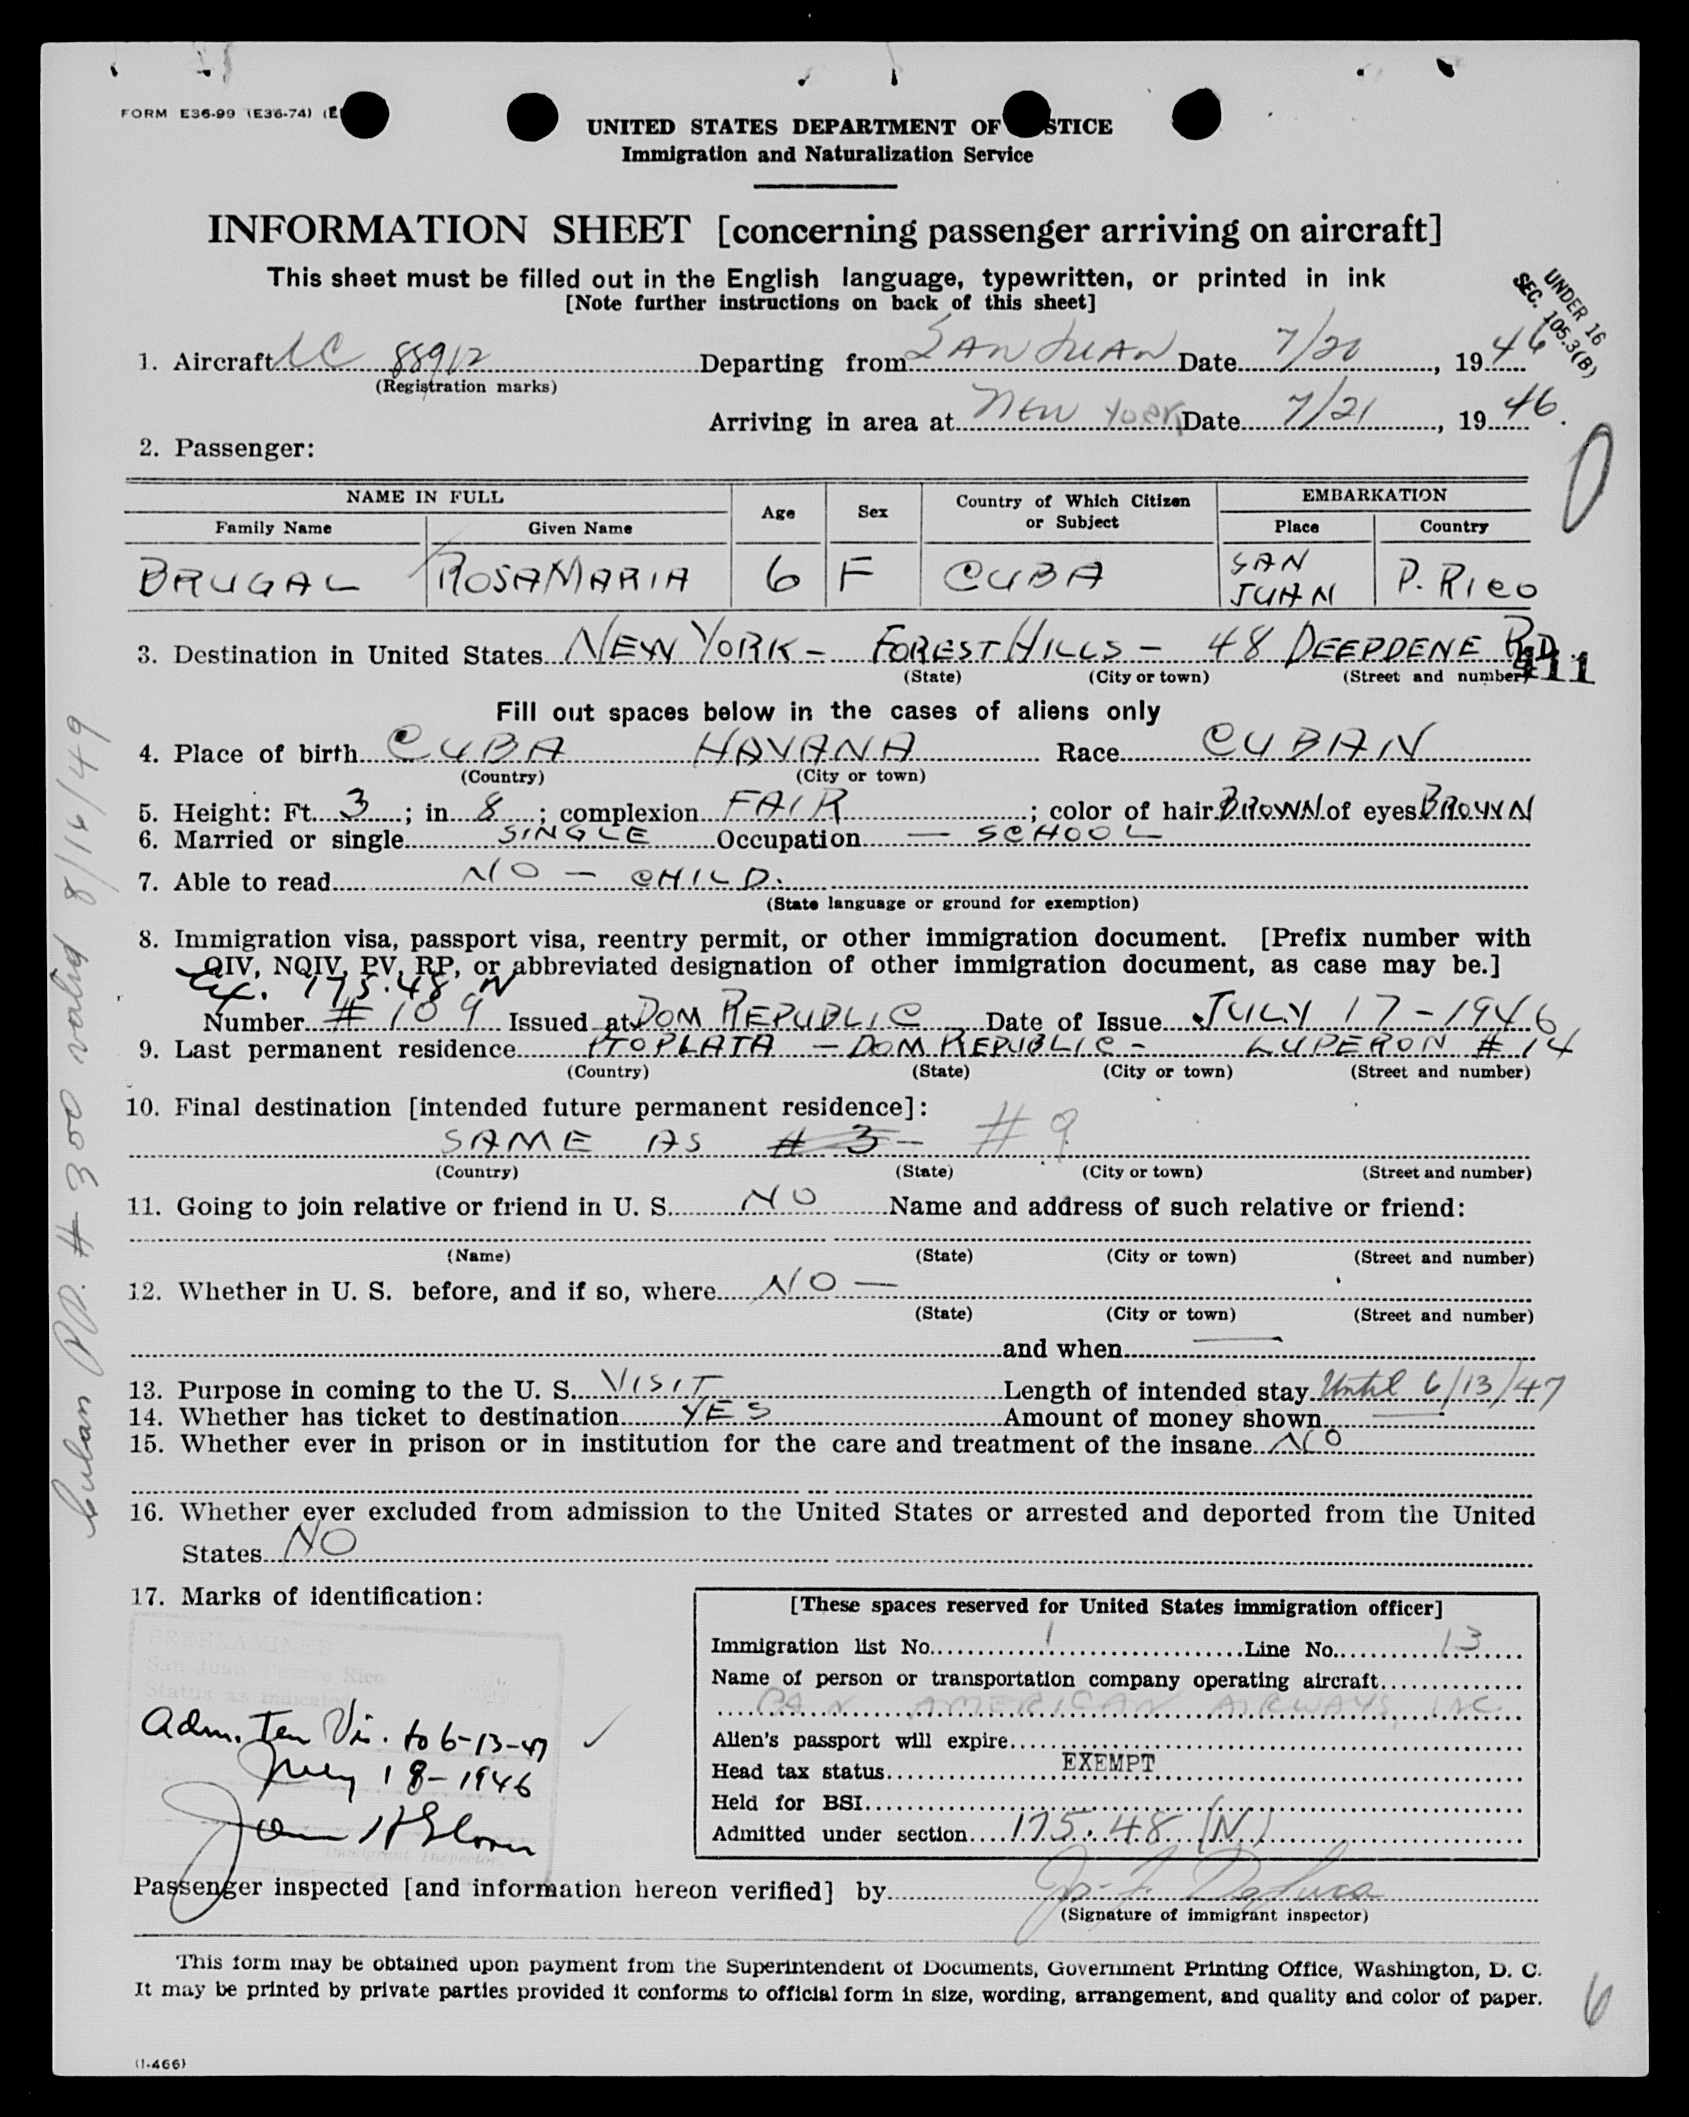 FORM E36-99 (E36-74) (E
UNITED STATES DEPARTMENT OF STICE
Immigration and Naturalization Service
INFORMATION SHEET [concerning passenger arriving on aircraft]
This sheet must be filled out in the English language, typewritten, or printed in ink
[Note further instructions on back of this sheet]
UNDER 16
SEC. 105.3(B)
1. Aircraft NC 88912 Departing from SAN JUAN Date 7/20, 1946
(Registration marks)
Arriving in area at NEW YORK Date 7/21, 1946.
2. Passenger:
NAME IN FULL Age Sex Country of Which Citizen or Subject EMBARKATION
Family Name Given Name Place Country
BRUGAL ROSA MARIA 6 F CUBA SAN JUAN P. RICO
3. Destination in United States NEW YORK - FOREST HILLS - 48 DEEPDENE RD.
(State) (City or town) (Street and number)
411
Fill out spaces below in the cases of aliens only
4. Place of birth CUBA HAVANA Race CUBAN
(Country) (City or town)
5. Height: Ft. 3; in 8; complexion FAIR; color of hair BROWN of eyes BROWN
6. Married or single SINGLE Occupation — SCHOOL
7. Able to read NO — CHILD.
(State language or ground for exemption)
8. Immigration visa, passport visa, reentry permit, or other immigration document. [Prefix number with
QIV, NQIV, PV, RP, or abbreviated designation of other immigration document, as case may be.]
175.48 N
Number # 109 Issued at DOM REPUBLIC Date of Issue JULY 17-1946
9. Last permanent residence PTO PLATA - DOM REPUBLIC - LUPERON # 14
(Country) (State) (City or town) (Street and number)
10. Final destination [intended future permanent residence]:
SAME AS # 3 - # 9
(Country) (State) (City or town) (Street and number)
11. Going to join relative or friend in U. S. NO Name and address of such relative or friend:
(Name) (State) (City or town) (Street and number)
12. Whether in U. S. before, and if so, where NO —
(State) (City or town) (Street and number)
and when —
13. Purpose in coming to the U. S. VISIT Length of intended stay Until 6/13/47
14. Whether has ticket to destination YES Amount of money shown —
15. Whether ever in prison or in institution for the care and treatment of the insane NO
16. Whether ever excluded from admission to the United States or arrested and deported from the United
States NO
17. Marks of identification:
PREEXAMINED
San Juan, Puerto Rico
Status as indicated
Adm. Tem Vis. to 6-13-47
July 18-1946
Immigrant Inspector
[These spaces reserved for United States immigration officer]
Immigration list No. 1 Line No. 13
Name of person or transportation company operating aircraft
PAN AMERICAN AIRWAYS, INC
Alien's passport will expire
Head tax status EXEMPT
Held for BSI
Admitted under section 175.48 (N)
Passenger inspected [and information hereon verified] by
(Signature of immigrant inspector)
This form may be obtained upon payment from the Superintendent of Documents, Government Printing Office, Washington, D. C.
It may be printed by private parties provided it conforms to official form in size, wording, arrangement, and quality and color of paper.
6
(1-466)
Cuban PP. # 300 valid 8/16/49